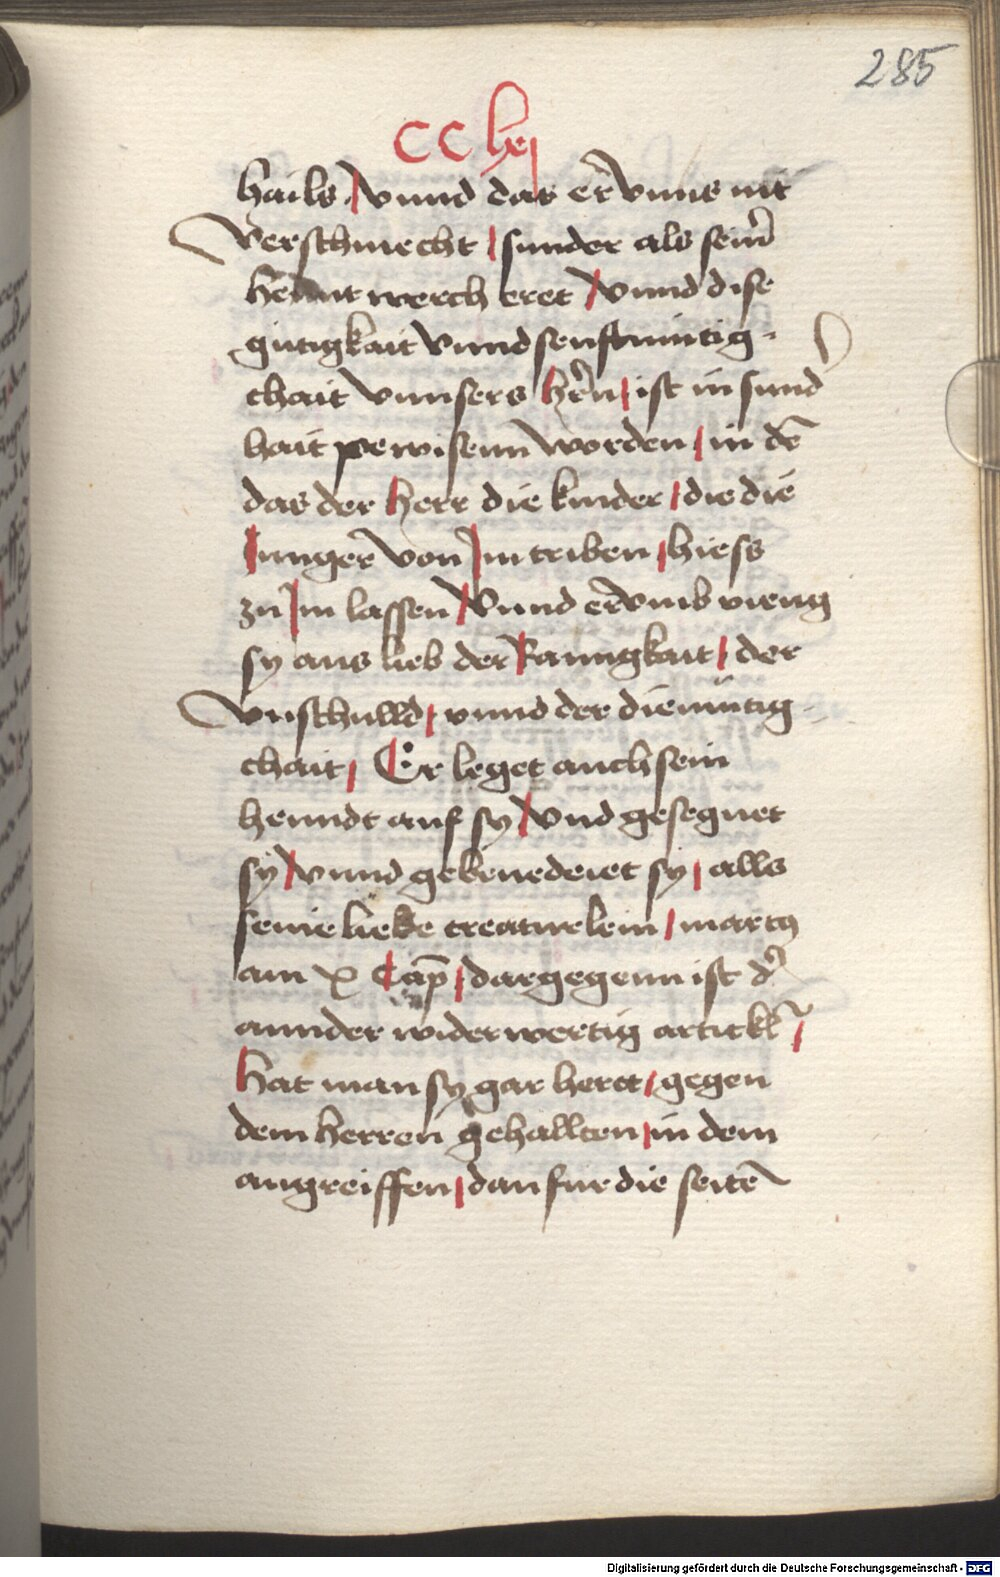 285
hails / vnnd das er vnns nit
verschmecht / sunder als seiñ
hennt werch eret / vnnd dise
gutigkait vnnd senftmütig-
chait vnnsers hr̄n / ist in sund
hait pewisenn worden / in dē
das der herr die kinder / die die
Junger von Jm triben / hiess
zu Jm lassen / Vnnd er vmbvieng
sy aus lieb der Rainigkait / der
vnschulld / vnnd der diemütig-
chait / Er leget auch sein
henndt auf sy / Vnd gesegnet
sy / vnnd gebenedeiet sy / alls
seine liebe creaturlein / marcy
am x Cap̄ / dargegenn ist d'
annder widerwertig artickl /
hat man sy gar hert / gegen
dem herren gehallten / in dem
angreiffen / dan fur die seitē
Digitalisierung gefördert durch die Deutsche Forschungsgemeinschaft - DFG